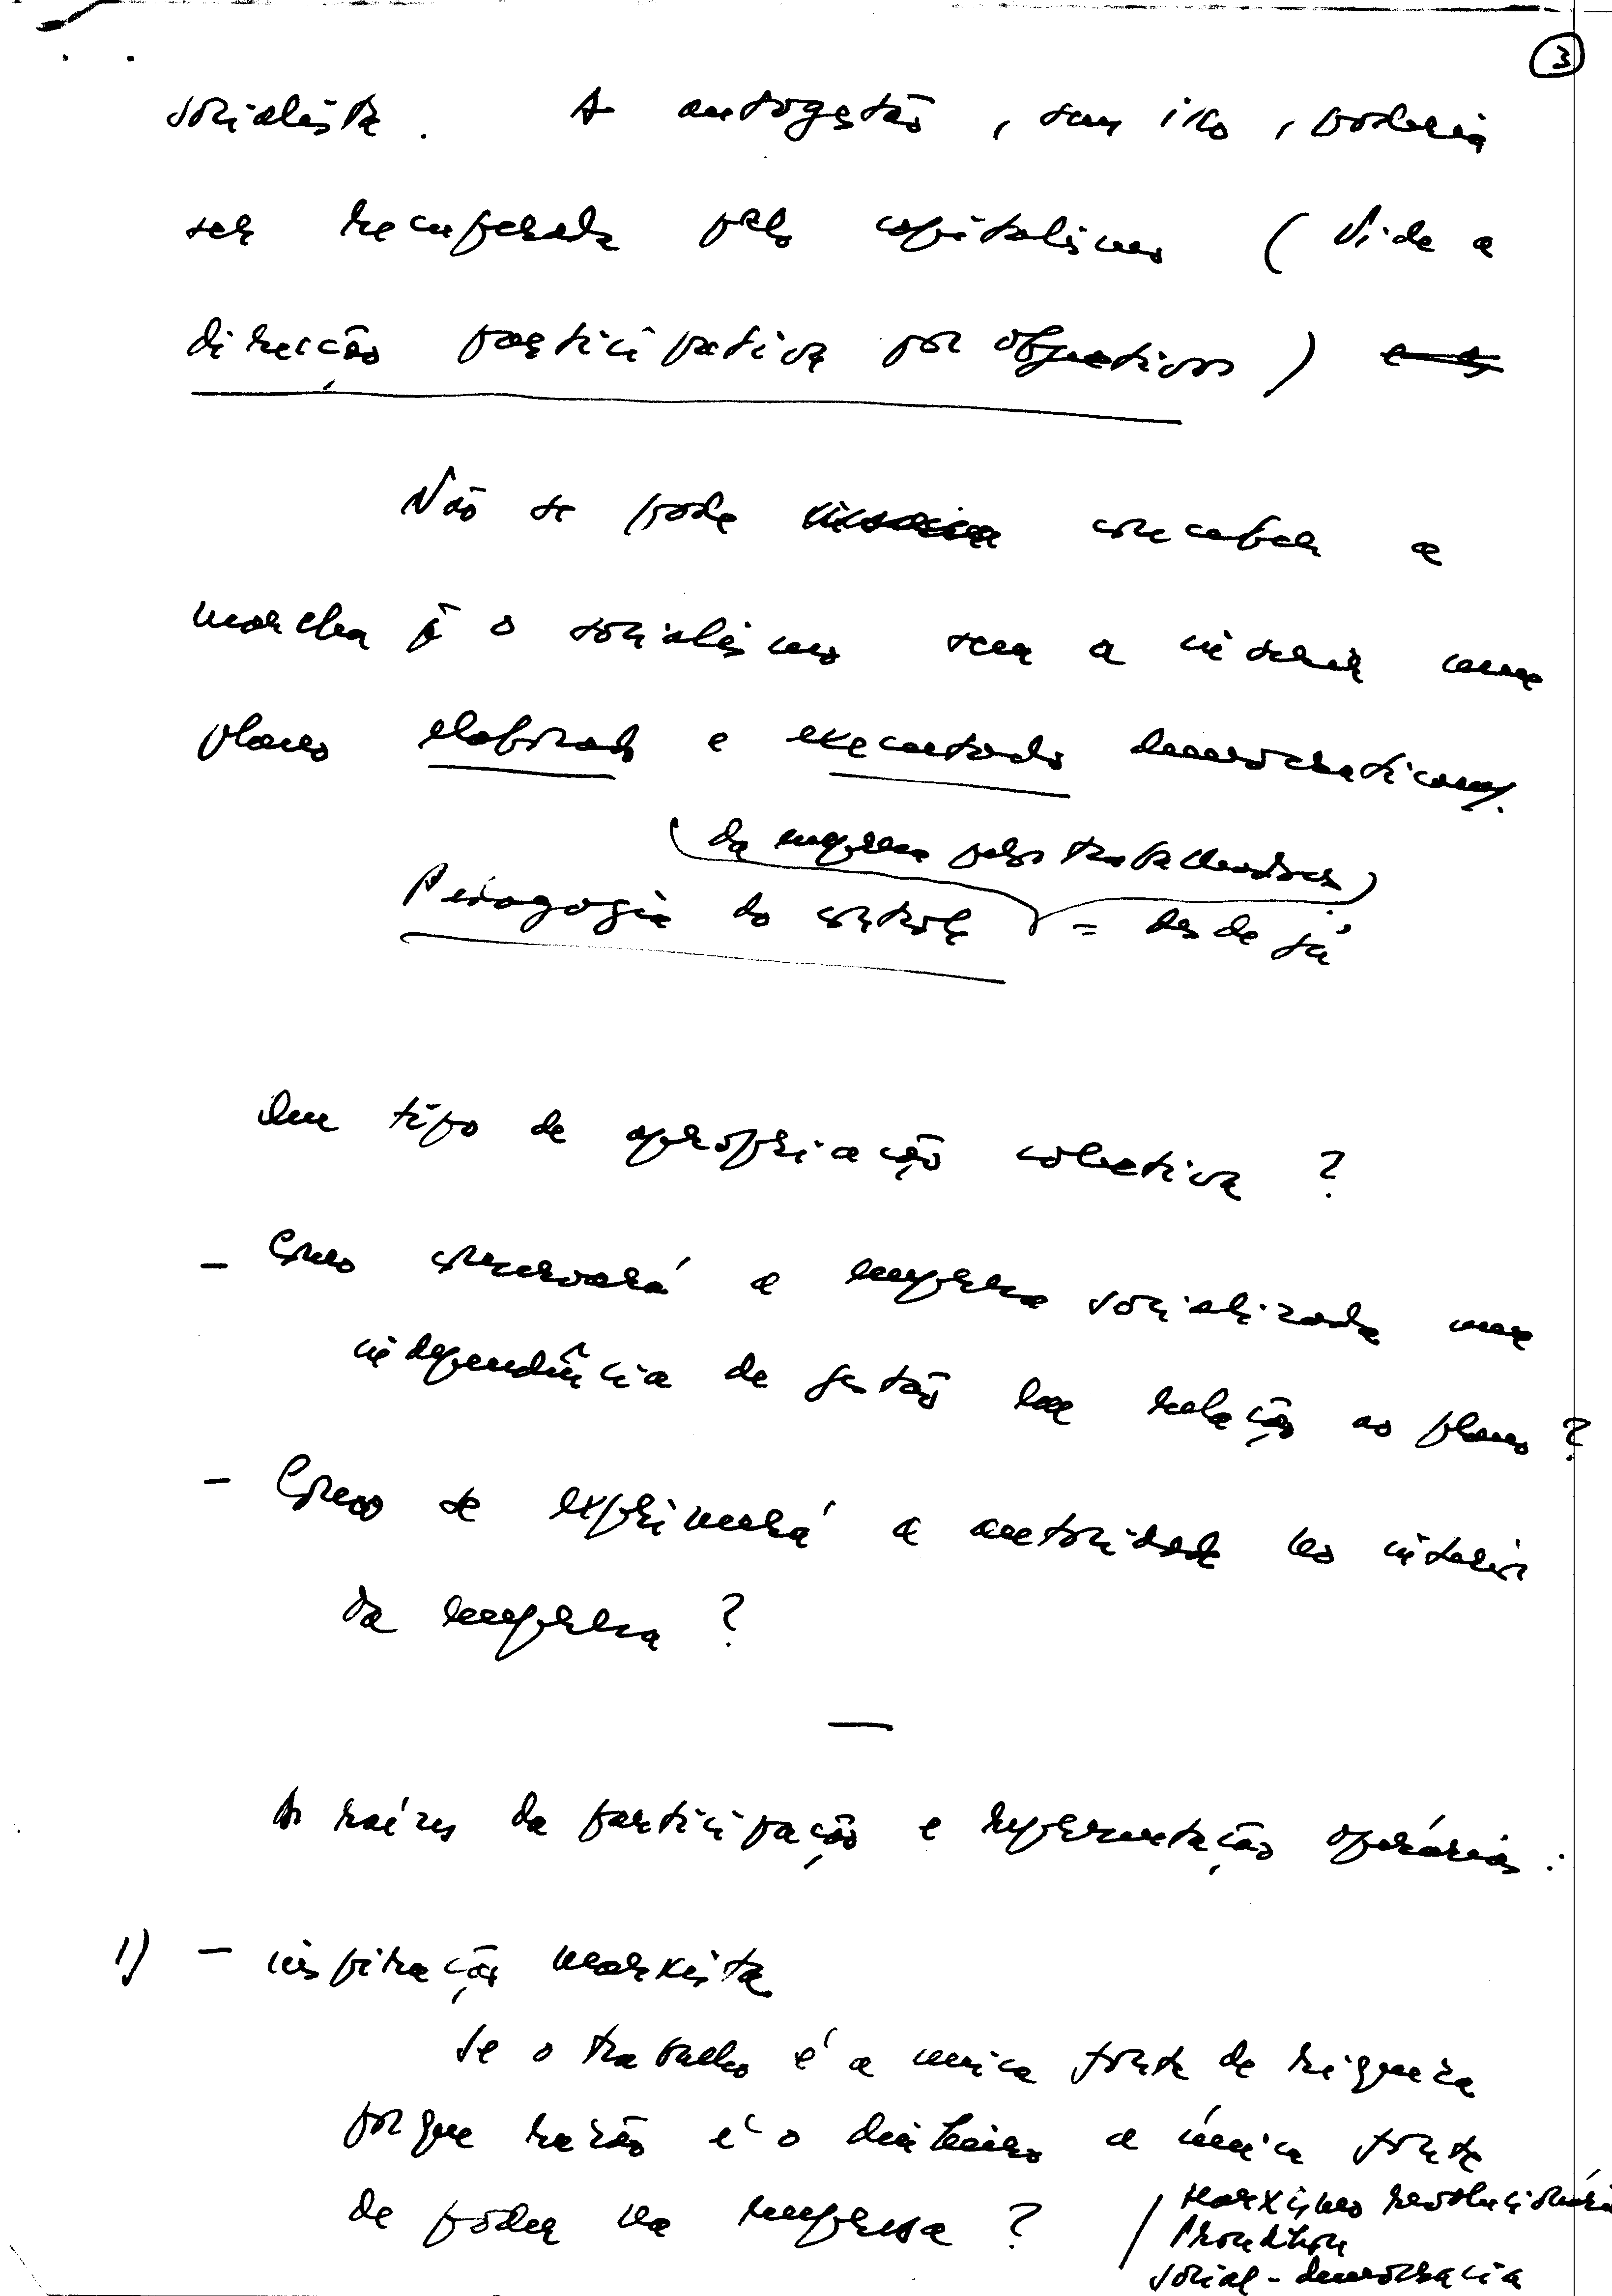 3
socialista. A autogestão, sem isso, poderia
ser recuperada pelo capitalismo (vide a
direcção participativa por objectivos)
Não se pode conceber a
marcha p.ª o socialismo sem a inserir num
plano elaborado e executado democraticam/.
(da empresa pelos trabalhadores)
Pedagogia do controle = desde já
Um tipo de apropriação colectiva ?
- Como conservará a empresa socializada uma
independência de gestão em relação ao plano ?
- Como se exprimirá a autoridade no interior
da empresa ?
As raízes da participação e representação operárias :
1) - inspiração marxista
Se o trabalho é a única fonte de riqueza
porque razão é o dinheiro a única fonte
de poder na empresa ?
/ Marxismo revolucionário
Proudhon
social-democracia